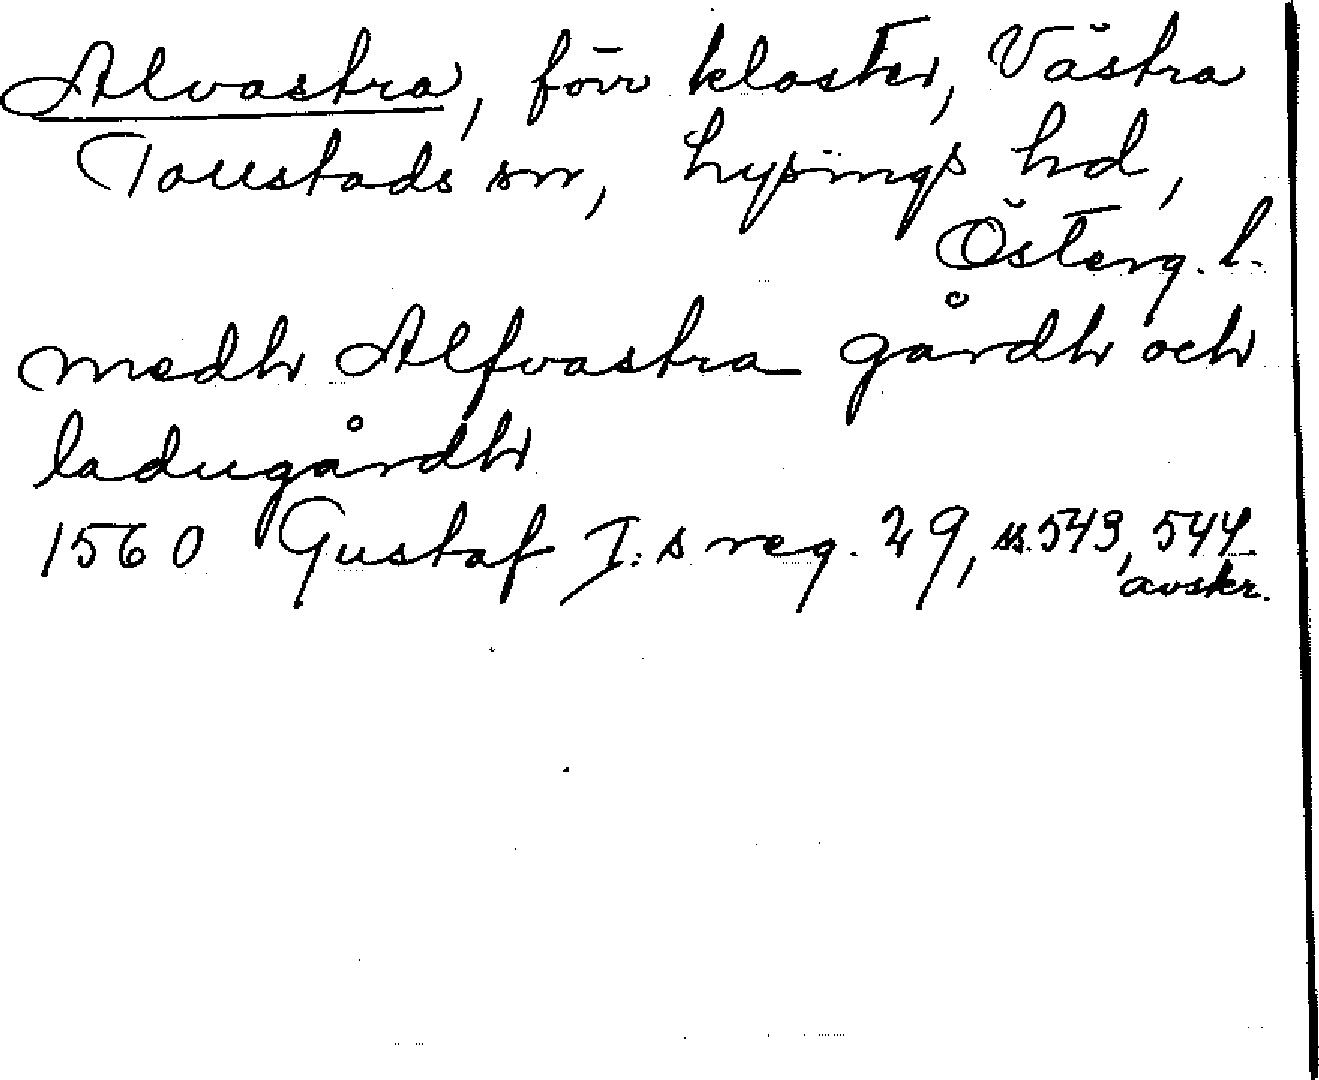 Alvastra, förr kloster, Västra
Tollstads sn, Lysings hd,
Österg. l.
medh Alfvastra gårdh och
ladugårdh
1560 Gustaf I:s reg. 29, ss. 543, 544
avskr.